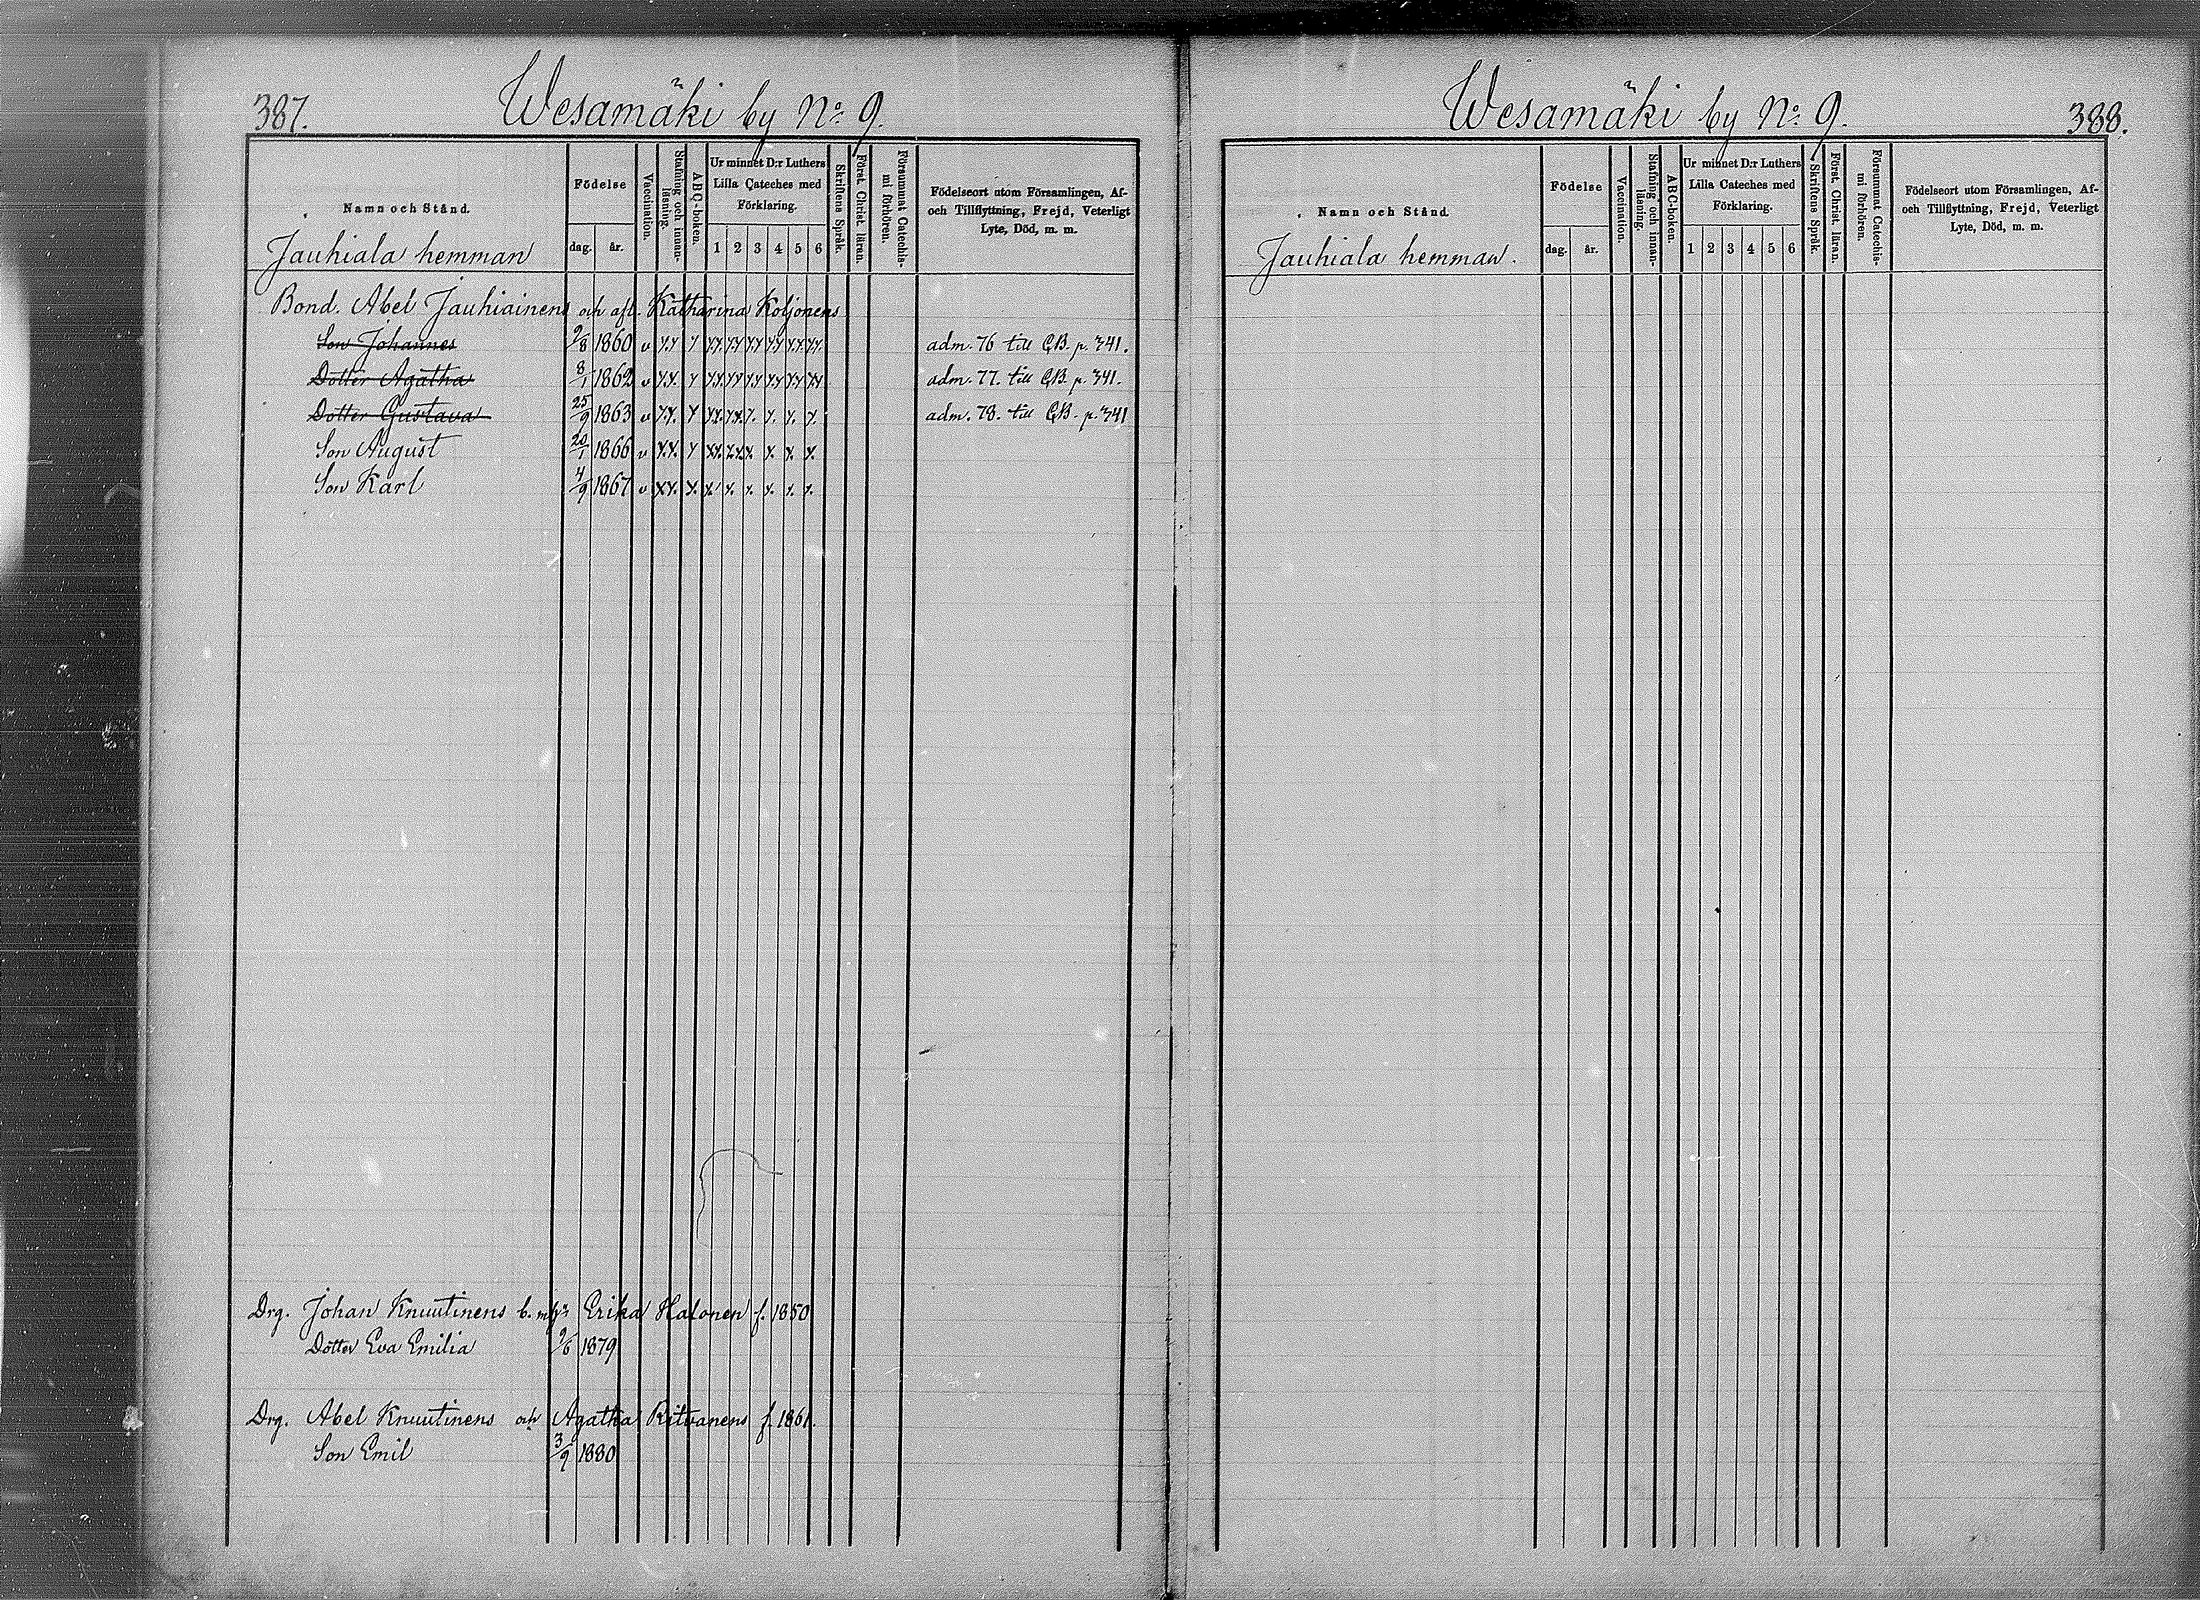 387. Wesamäki by No. 9.
Namn och Stånd.
Jauhiala hemman
Födelse
dag. år.
Vaccination.
Stafning och innanläsning.
ABC-boken.
Ur minnet D:r Luthers Lilla Cateches med Förklaring.
1 2 3 4 5 6
Skriftens Språk.
Först. Christ. läran.
Försummat Catechismi förhören.
Födelseort utom Församlingen, Af-
och Tillflyttning, Frejd, Veterligt
Lyte, Död, m. m.
Bond. Abel Jauhiainens och afl. Katharina Koljonens
Son Johannes 9/8 1860 v adm. 76 till CB. p. 341.
Dotter Agatha 8/1 1862 v adm. 77. till CB. p. 341.
Dotter Gustava 25/9 1863 v adm. 78. till CB. p. 341
Son August 20/1 1866 v
Son Karl 4/9 1867 v
Drg. Johan Knuutinens Erika Halonen f. 1850
Dotter Eva Emilia 9/6 1879
Drg. Abel Knuutinens och Agatha Ritvanens f. 1861.
Son Emil 3/9 1880
Wesamäki by No. 9. 388.
Namn och Stånd.
Jauhiala hemman.
Födelse
dag. år.
Vaccination.
Stafning och innanläsning.
ABC-boken.
Ur minnet D:r Luthers Lilla Cateches med Förklaring.
1 2 3 4 5 6
Skriftens Språk.
Först. Christ. läran.
Försummat Catechismi förhören.
Födelseort utom Församlingen, Af-
och Tillflyttning, Frejd, Veterligt
Lyte, Död, m. m.